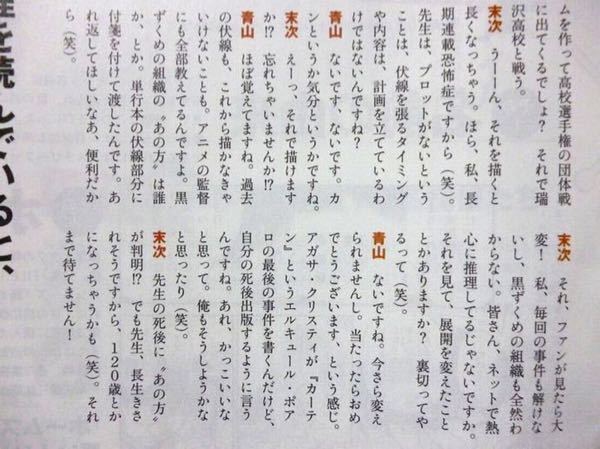 ムを作って高校選手権の団体戦
に出てくるでしょ？　それで瑞
沢高校と戦う。
末次　うーーん、それを描くと
長くなっちゃう。ほら、私、長
期連載恐怖症ですから（笑）。
先生は、プロットがないという
ことは、伏線を張るタイミング
や内容は、計画を立てているわ
けではないんですね？
青山　ないです、ないです。カ
ンというか気分というかですね。
末次　えーっ、それで描けます
か!?　忘れちゃいませんか!?
青山　ほぼ覚えてますね。過去
の伏線も、これから描かなきゃ
いけないことも。アニメの監督
にも全部教えてるんですよ。黒
ずくめの組織の〝あの方〟は誰
か、とか。単行本の伏線部分に
付箋を付けて渡したんです。あ
れ返してほしいなあ、便利だか
ら（笑）。
末次　それ、ファンが見たら大
変！　私、毎回の事件も解けな
いし、黒ずくめの組織も全然わ
からない。皆さん、ネットで熱
心に推理してるじゃないですか。
それを見て、展開を変えたこと
とかありますか？　裏切ってや
るって（笑）。
青山　ないですね。今さら変え
られませんし。当たったらおめ
でとうございます、という感じ。
アガサ・クリスティが『カーテ
ン』というエルキュール・ポア
ロの最後の事件を書くんだけど、
自分の死後出版するように言う
んですね。あれ、かっこいいな
と思って。俺もそうしようかな
と思ったり（笑）。
末次　先生の死後に〝あの方〟
が判明!?　でも先生、長生きさ
れそうですから、１２０歳とか
になっちゃうかも（笑）。それ
まで待てません！
を読んでいると、